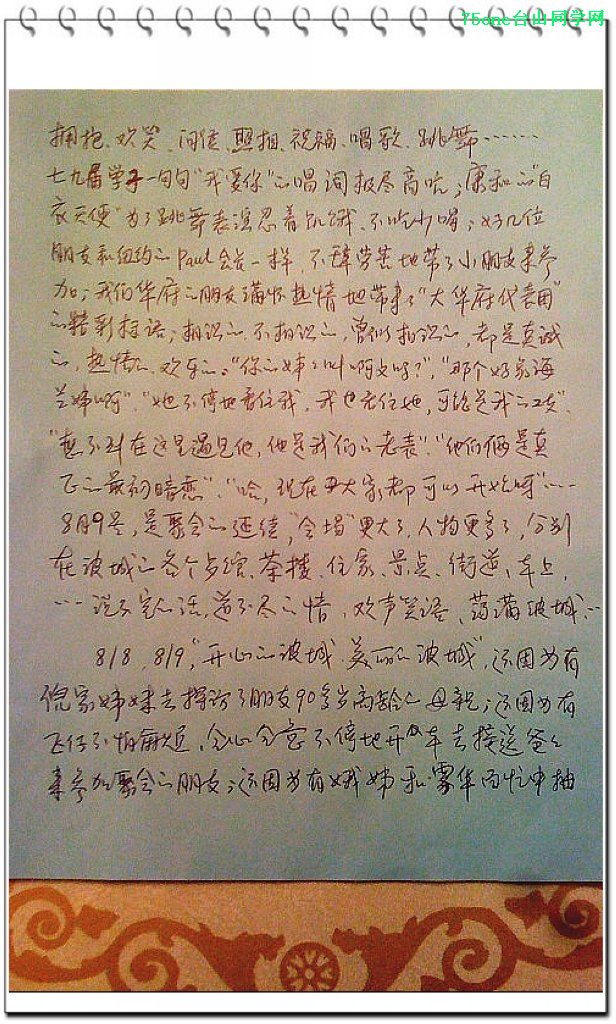 75one台山同学网
拥抱、欢笑、问候、照相、祝福、唱歌、跳舞……
七九届学子一句句"我要你"的唱词极尽高吭;康和的"白
衣天使"为了跳舞表演忍着饥饿、不吃不喝;好几位
朋友和纽约的Paul会长一样,不辞劳苦地带了小朋友来参
加;我们华府的朋友满怀热情地带来了"大华府代表团"
的精彩 ;相识的、不相识的、曾似相识的,都是真诚
的、热情的、欢乐的。"你的姊姊叫 吗?","那个好象海
兰姊呀"、"她不停地看住我,我也看住她,可能是我的 "、
"想不到在这里遇见他,他是我们的老表"、"他们俩是真
正的最初暗恋"、"哈,现在 大家都可以开始呀"……
8月9号,是聚会的延续,"会场"更大了,人物更多了,分别
在波城的各个 馆、茶楼、住家、景点、街道、车上,
……说不完的话,道不尽的情,欢声笑语,荡满波城……
8/8、8/9,"开心的波城、美丽的波城",还因为有
倪家姊妹去探访了朋友90多岁高龄的母亲;还因为有
飞仔不怕麻烦,全心全意不停地开大车去接送爸爸
来参加聚会的朋友;还因为有娥姊和 华百忙中抽